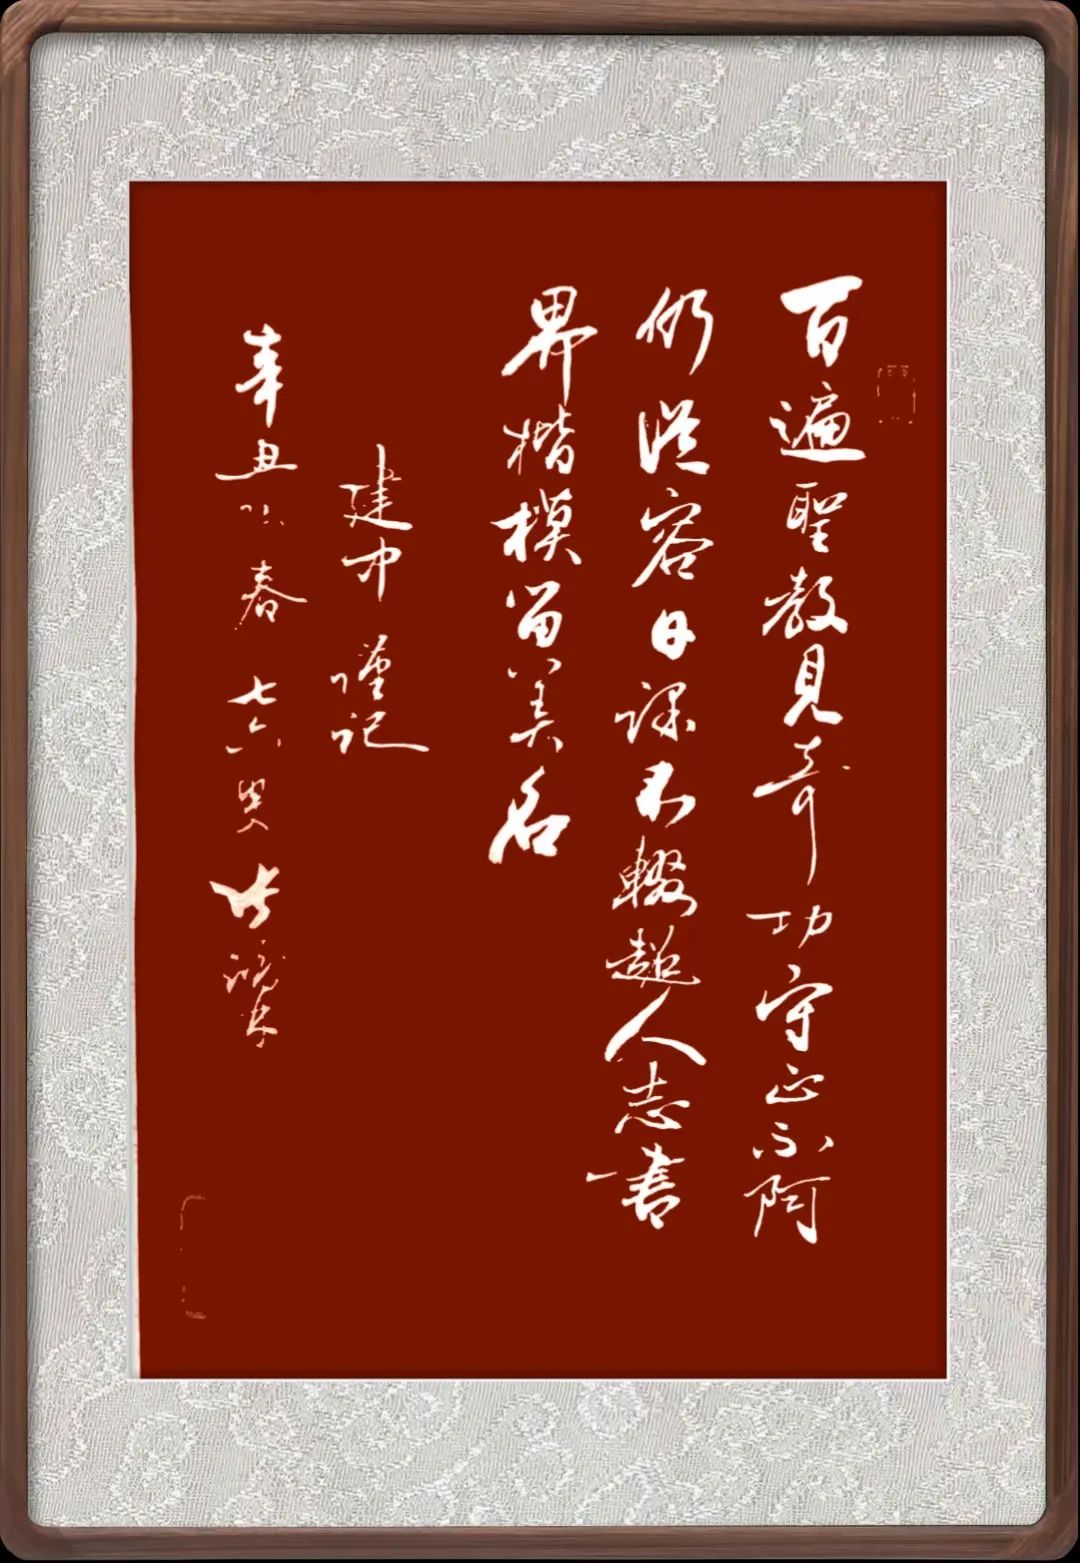 百遍聖教見奇功守正不阿
仍從容日課不輟超人志書
界楷模留美名
建中謹记
辛丑春七六叟